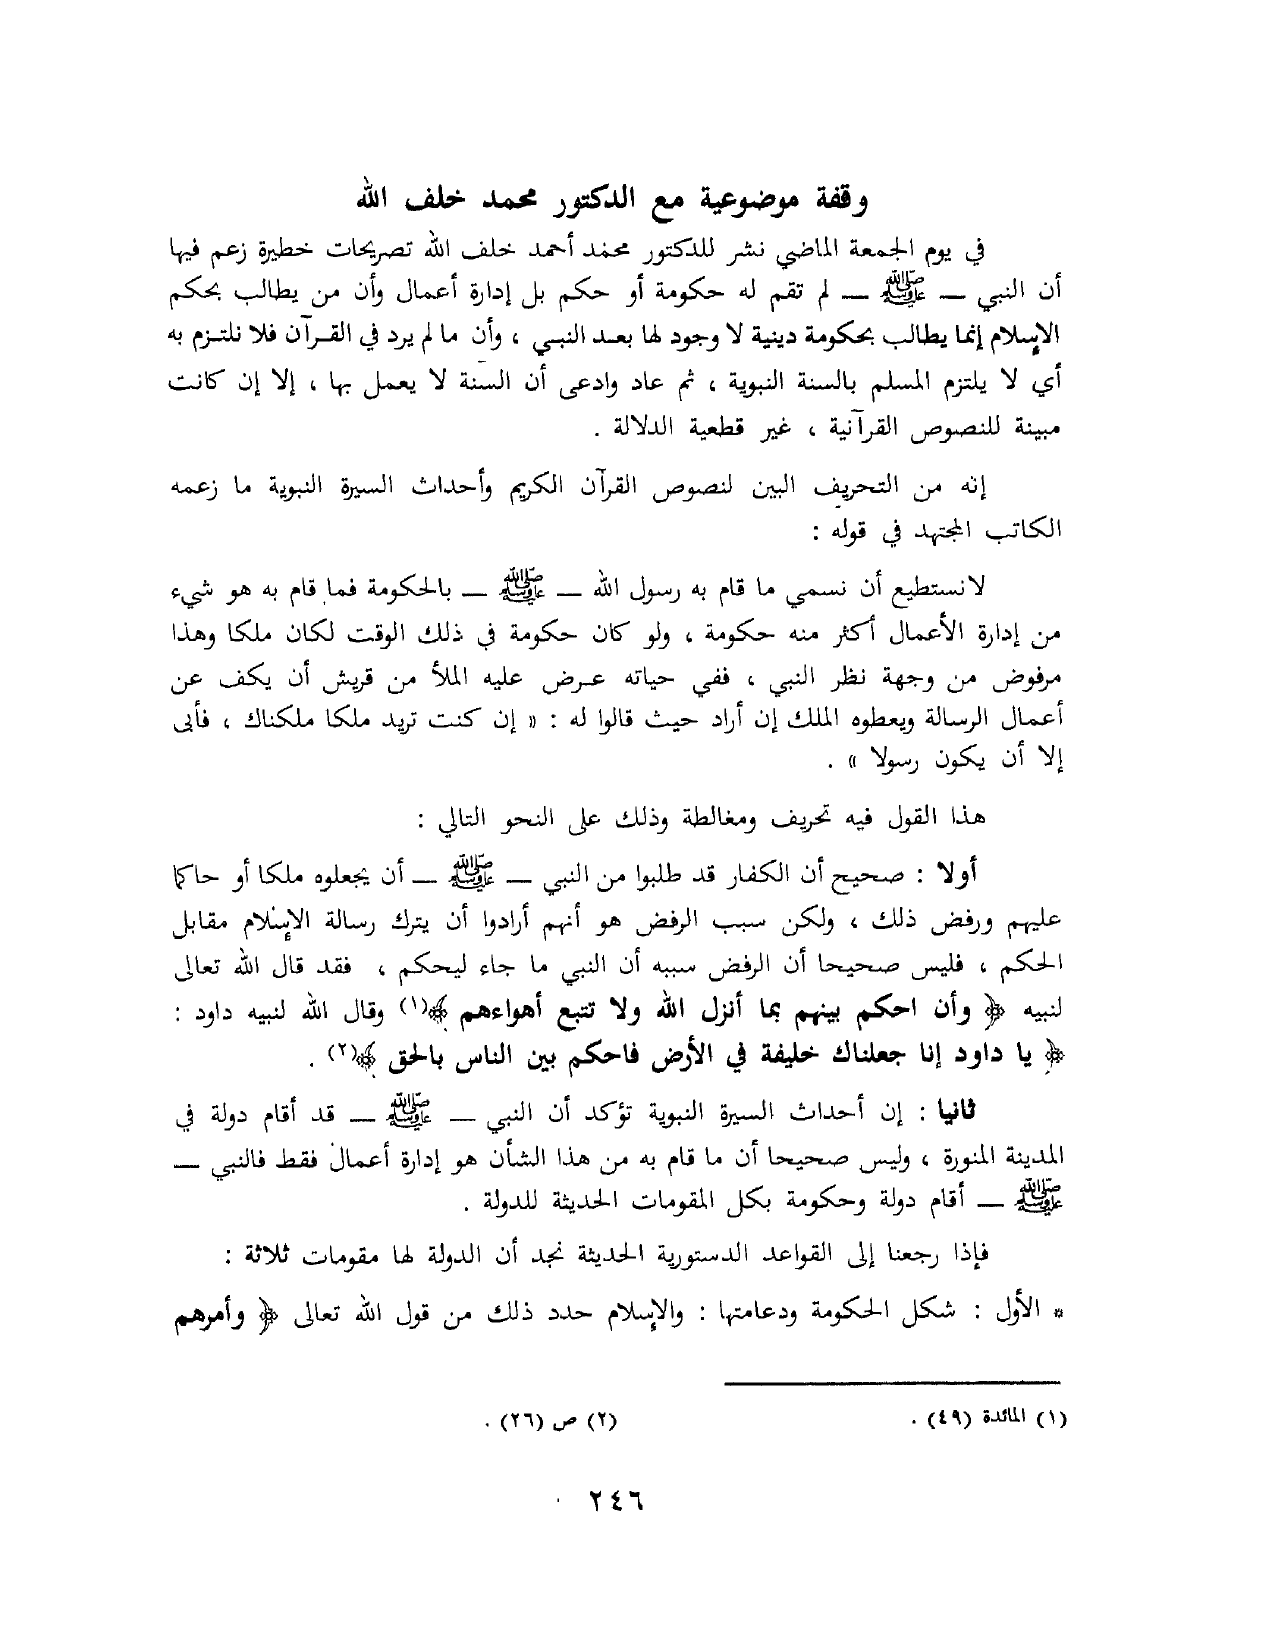 وقفة موضوعية مع الدكتور محمد خلف الله
في يوم الجمعة الماضي نشر للدكتور محمد أحمد خلف الله تصريحات خطيرة زعم فيها
أن النبي — ﷺ — لم تقم له حكومة أو حكم بل إدارة أعمال وأن من يطالب بحكم
الإسلام إنما يطالب بحكومة دينية لا وجود لها بعد النبي ، وأن ما لم يرد في القرآن فلا نلتزم به
أي لا يلتزم المسلم بالسنة النبوية ، ثم عاد وادعى أن السنة لا يعمل بها ، إلا إن كانت
مبينة للنصوص القرآنية ، غير قطعية الدلالة .
إنه من التحريف البين لنصوص القرآن الكريم وأحداث السيرة النبوية ما زعمه
الكاتب المجتهد في قوله :
لانستطيع أن نسمي ما قام به رسول الله — ﷺ — بالحكومة فما قام به هو شيء
من إدارة الأعمال أكثر منه حكومة ، ولو كان حكومة في ذلك الوقت لكان ملكا وهذا
مرفوض من وجهة نظر النبي ، ففي حياته عرض عليه الملأ من قريش أن يكف عن
أعمال الرسالة ويعطوه الملك إن أراد حيث قالوا له : « إن كنت تريد ملكا ملكناك ، فأبى
إلا أن يكون رسولا » .
هذا القول فيه تحريف ومغالطة وذلك على النحو التالي :
أولا : صحيح أن الكفار قد طلبوا من النبي — ﷺ — أن يجعلوه ملكا أو حاكما
عليهم ورفض ذلك ، ولكن سبب الرفض هو أنهم أرادوا أن يترك رسالة الإسلام مقابل
الحكم ، فليس صحيحا أن الرفض سببه أن النبي ما جاء ليحكم ، فقد قال الله تعالى
لنبيه ﴿ وأن احكم بينهم بما أنزل الله ولا تتبع أهواءهم ﴾(١) وقال الله لنبيه داود :
﴿ يا داود إنا جعلناك خليفة في الأرض فاحكم بين الناس بالحق ﴾(٢) .
ثانيا : إن أحداث السيرة النبوية تؤكد أن النبي — ﷺ — قد أقام دولة في
المدينة المنورة ، وليس صحيحا أن ما قام به من هذا الشأن هو إدارة أعمال فقط فالنبي —
ﷺ — أقام دولة وحكومة بكل المقومات الحديثة للدولة .
فإذا رجعنا إلى القواعد الدستورية الحديثة نجد أن الدولة لها مقومات ثلاثة :
* الأول : شكل الحكومة ودعامتها : والإسلام حدد ذلك من قول الله تعالى ﴿ وأمرهم
(١) المائدة (٤٩) . (٢) ص (٢٦) .
٢٤٦